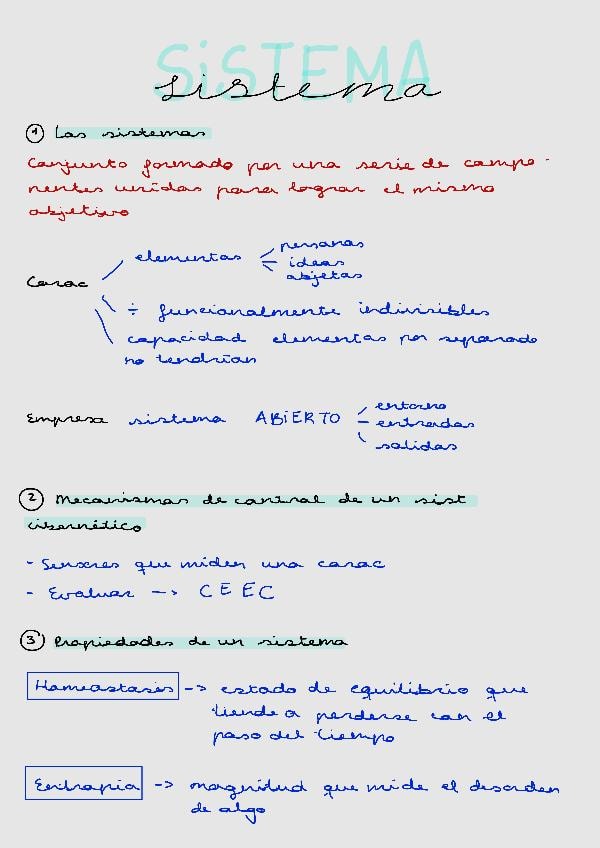 SiSTEMA
sistema
1 Los sistemas
Conjunto formado por una serie de compo-
nentes unidos para lograr el mismo
objetivo
Carac
elementos
personas
ideas
objetos
÷ funcionalmente indivisibles
capacidad elementos por separado
no tendrían
Empresa sistema ABiERTO
entorno
entradas
salidas
2 Mecanismos de control de un sist
cibernético
- Sensores que miden una carac
- Evaluar -> C E E C
3 Propiedades de un sistema
Homeostasis -> estado de equilibrio que
tiende a perderse con el
paso del tiempo
Entropia -> magnitud que mide el desorden
de algo